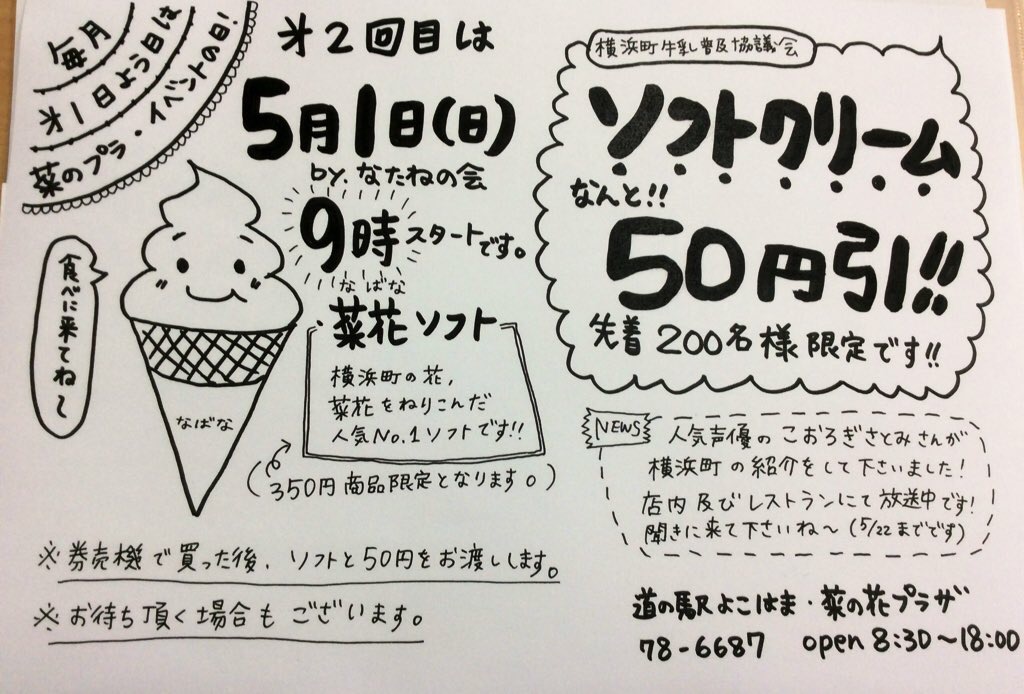 毎月
才1日よう日は
菜のプラ・イベントの日!
才2回目は
5月1日(日)
by.なたねの会
9時スタートです。
食べに来てね〜
なばな
なばな
菜花ソフト
横浜町の花,
菜花をねりこんだ
人気No.1ソフトです!!
(350円商品限定となります。)
横浜町牛乳普及協議会
ソフトクリーム
なんと!!
50円引!!
先着200名様限定です!!
NEWS
人気声優のこおろぎさとみさんが
横浜町の紹介をして下さいました!
店内及びレストランにて放送中です!
聞きに来て下さいね〜(5/22までです)
※券売機で買った後、ソフトと50円をお渡しします。
※お待ち頂く場合もございます。
道の駅よこはま・菜の花プラザ
78-6687 open 8:30〜18:00